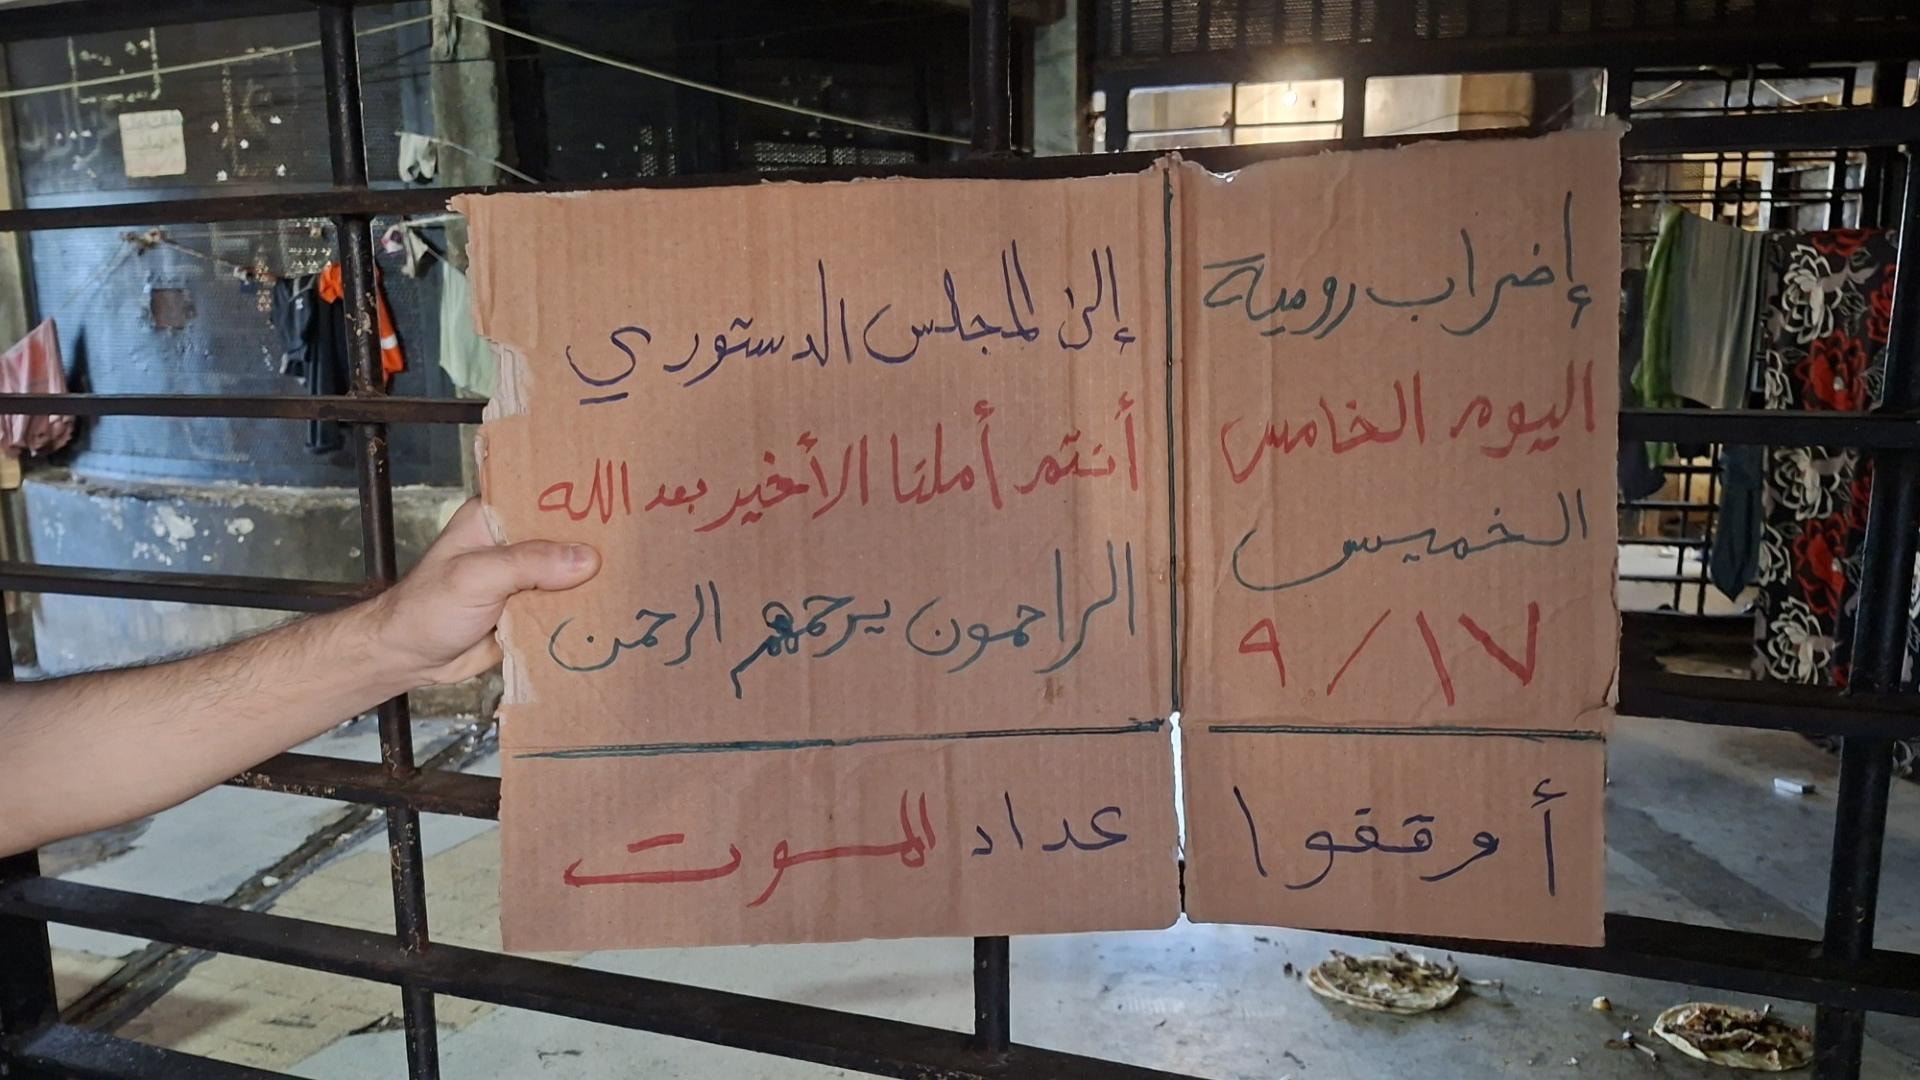 إضراب رومية
اليوم الخامس
الخميس
٩/١٧
إلى المجلس الدستوري
أنتم أملنا الأخير بعد الله
الراحمون يرحمهم الرحمن
أوقفوا
عداد الموت